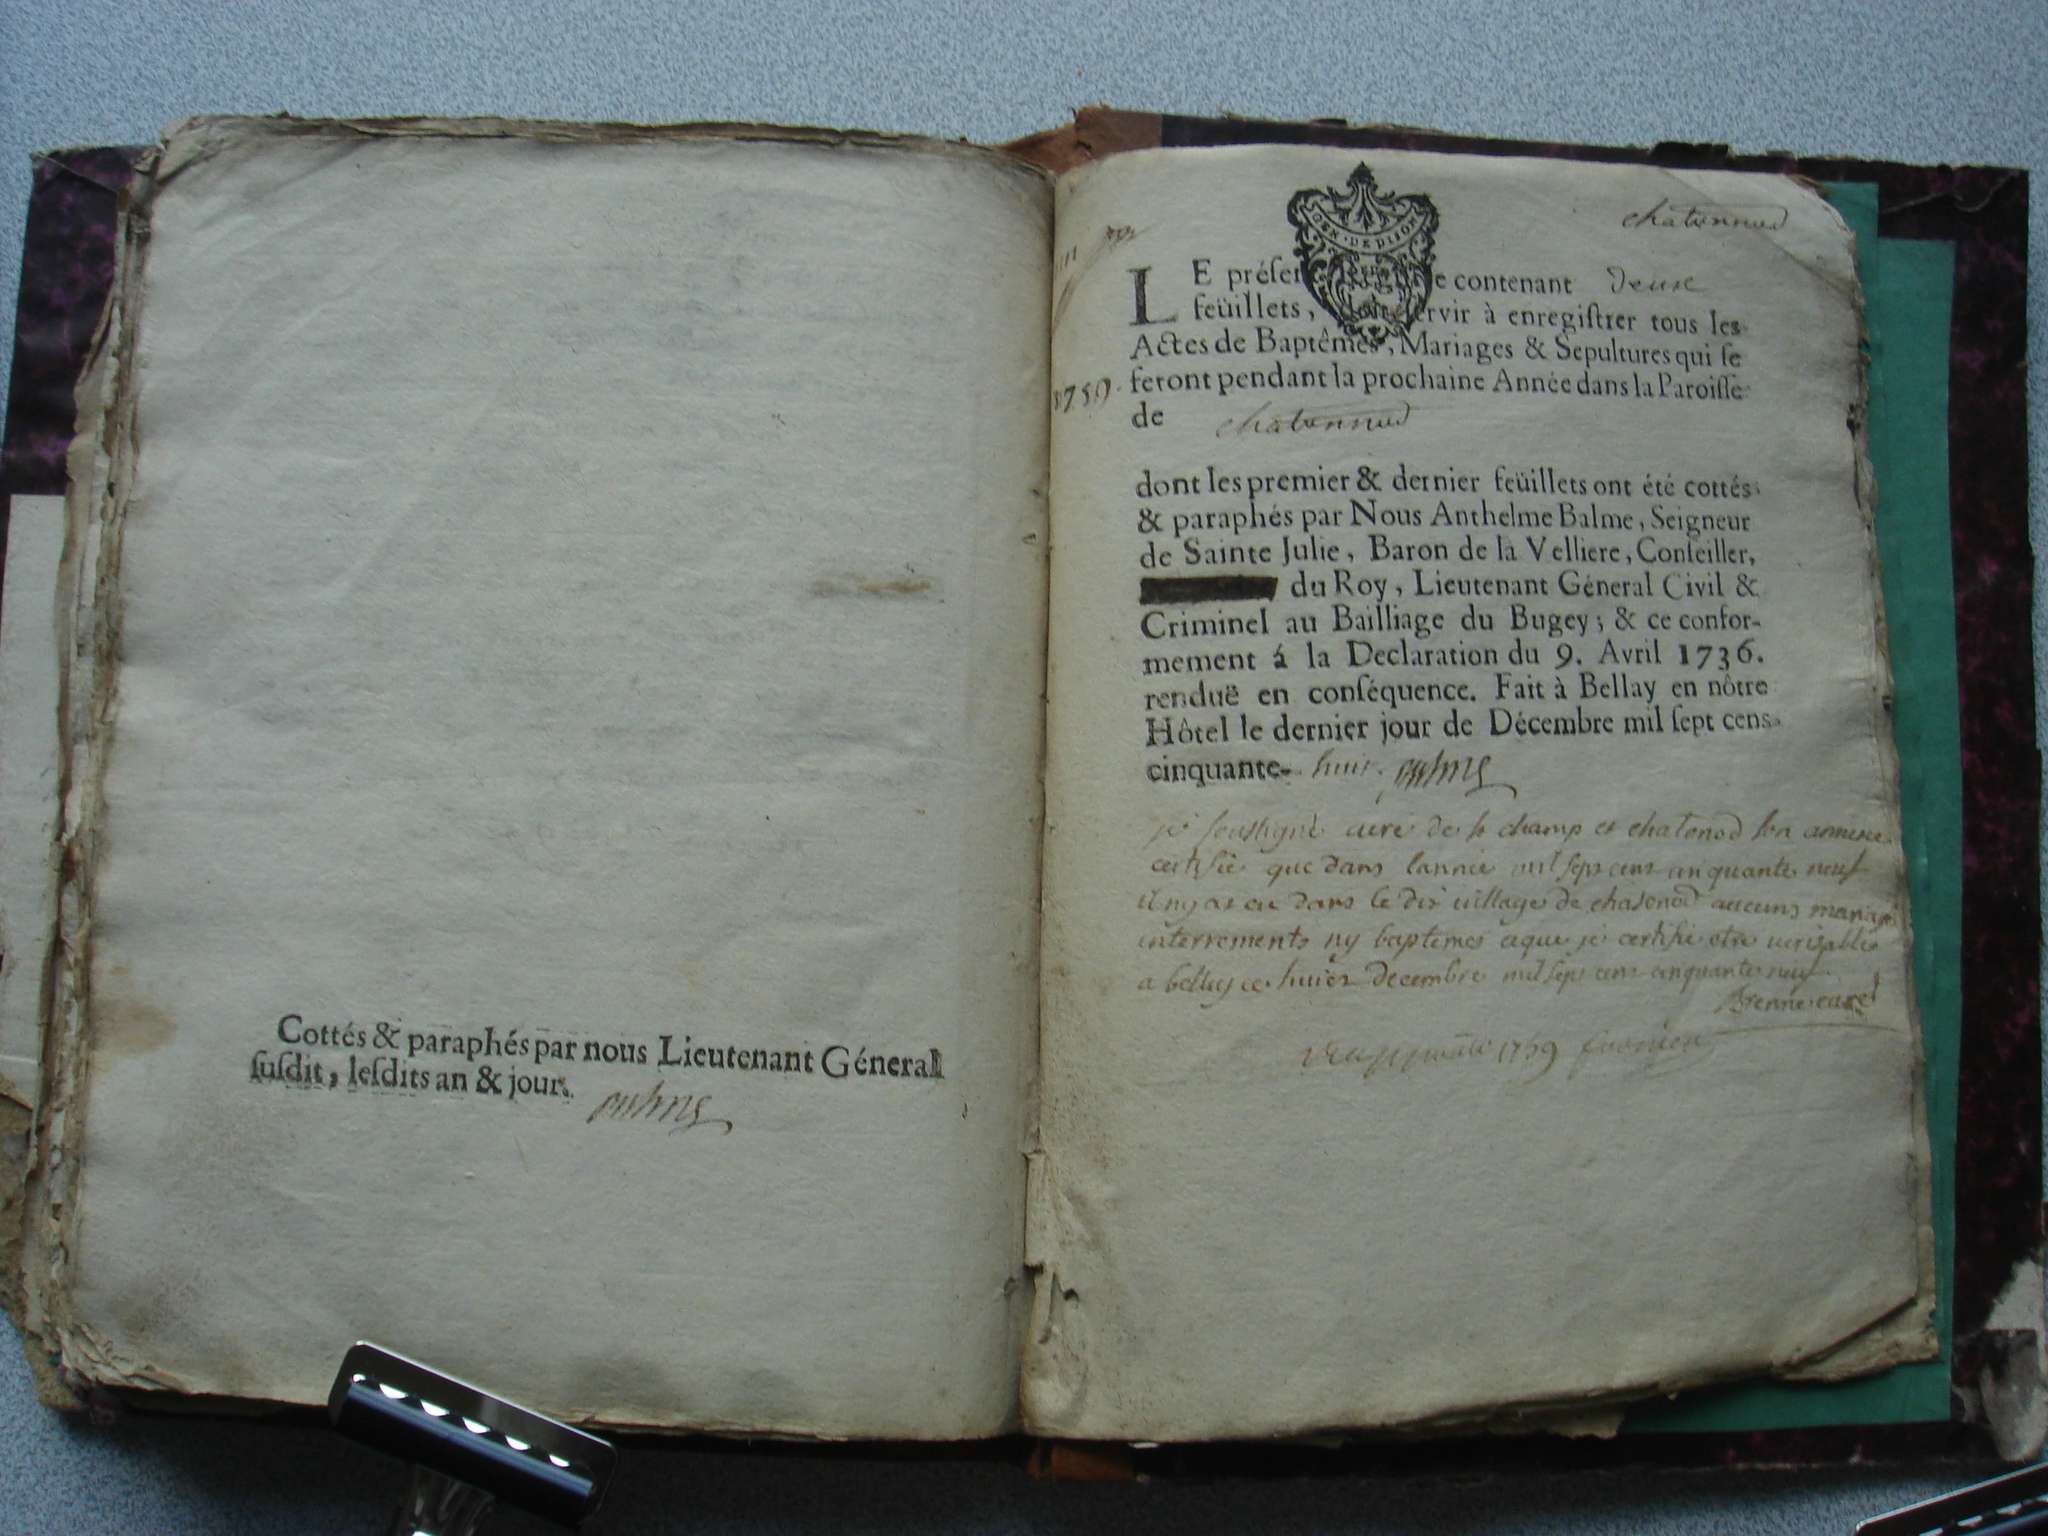 Cottés & paraphés par nous Lieutenant Géneral
susdit, lesdits an & jour.
GEN. DE DIJON
chatonnod
LE présent Registre contenant deux
feüillets, doit servir à enregistrer tous les
Actes de Baptêmes, Mariages & Sepultures qui se
feront pendant la prochaine Année dans la Paroisse
1759.
de chatonnod
dont les premier & dernier feüillets ont été cottés
& paraphés par Nous Anthelme Balme, Seigneur
de Sainte Julie, Baron de la Velliere, Conseiller,
du Roy, Lieutenant Géneral Civil &
Criminel au Bailliage du Bugey; & ce confor-
mement á la Declaration du 9. Avril 1736.
renduë en conséquence. Fait à Bellay en nôtre
Hôtel le dernier jour de Décembre mil sept cens
cinquante-huit.
je soussigné curé de champ et chatonod son annexe
certifie que dans lannée mil sept cens cinquante neuf
il ny a eu dans le dit village de chatonod aucuns mariages
interrements ny baptemes ce que je certifie etre veritable
a belley ce huict decembre mil sept cens cinquante neuf
1759